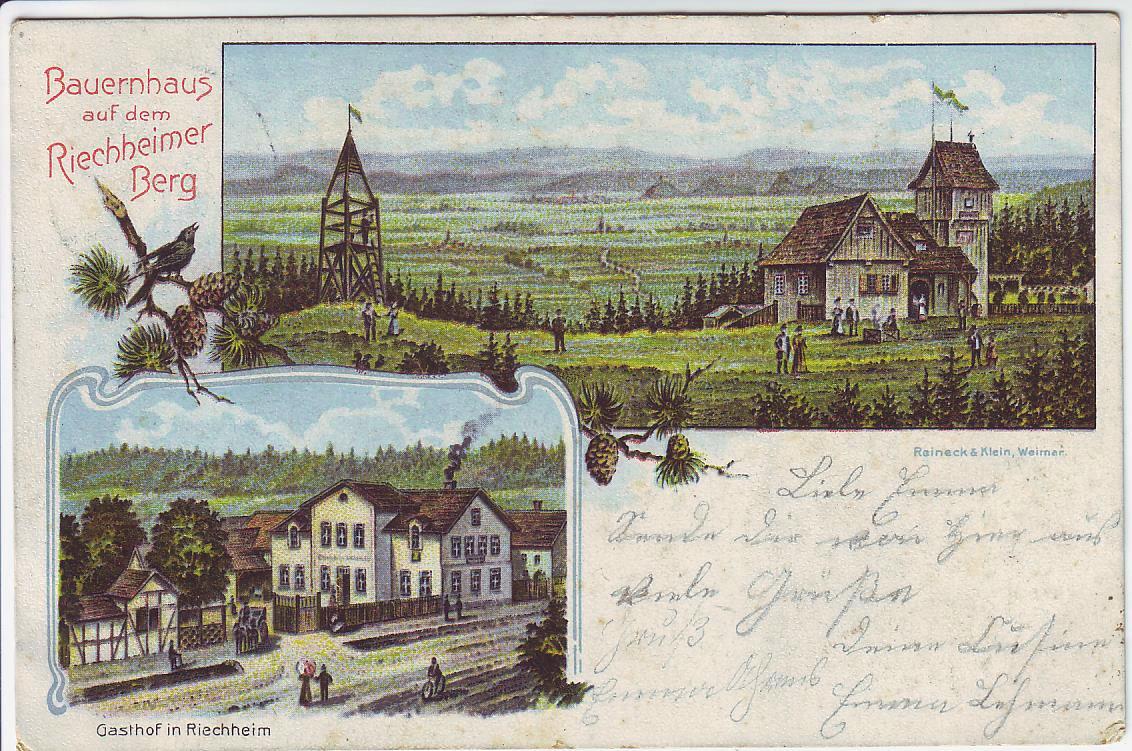 Bauernhaus
auf dem
Riechheimer
Berg
Reineck & Klein, Weimar.
Liebe Emma
Sende dir von hier aus
viele Grüße
Gruß
deine Cusine
Emma
Emma Lehmann
Gasthof in Riechheim